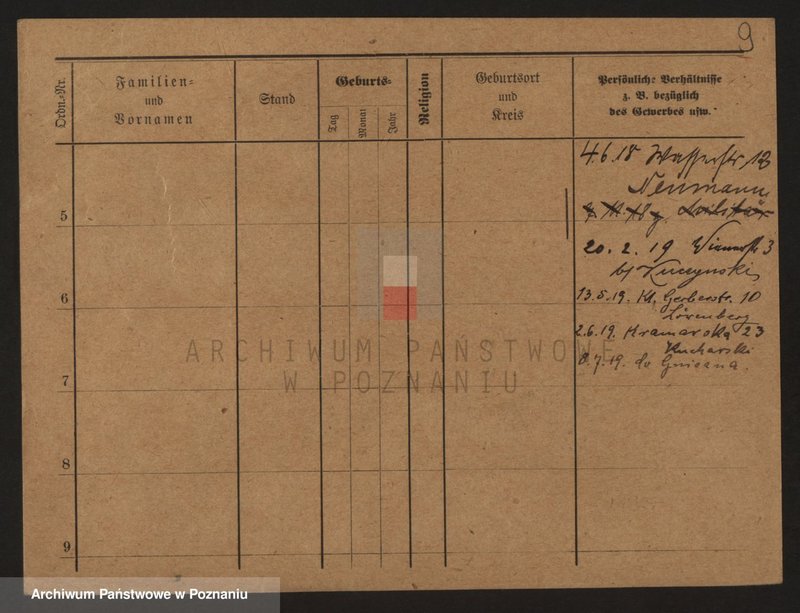 9
Ordn.-Nr.
Familien-
und
Vornamen
Stand
Geburts-
Tag
Monat
Jahr
Religion
Geburtsort
und
Kreis
Persönliche Verhältnisse
z. B. bezüglich
des Gewerbes usw.
4.6.18 Wasserstr
Neumann
20.2.19 3
b/ Kuczynski
13.5.19. Kl. Gerberstr. 10
Löwenberg
2.6.19. Kramarska 23
Kucharski
8.7.19. do Gniezna.
5
6
7
8
9
ARCHIWUM PAŃSTWOWE
W POZNANIU
Archiwum Państwowe w Poznaniu